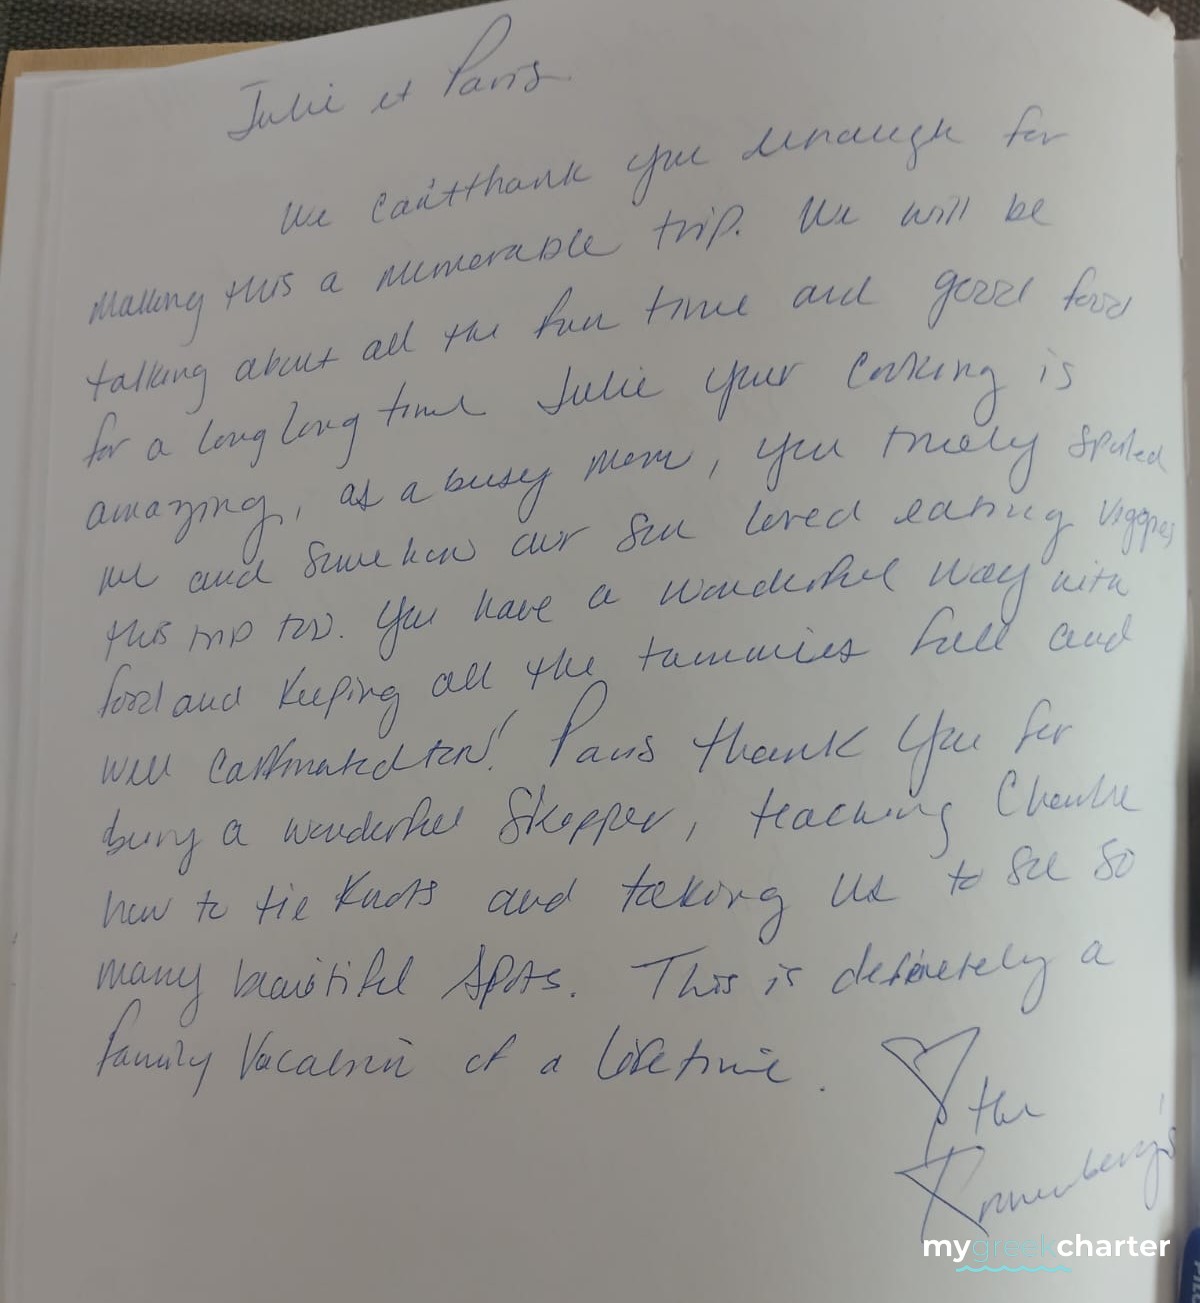 Julie et Paris
We can't thank you enough for
making this a memorable trip. We will be
talking about all the fun time and good food
for a long long time Julie your cooking is
amazing, as a busy mom, you truely spoiled
me and somehow our son loved eating veggies
this trip too. You have a wonderful way with
food and keeping all the tummies full and
well
too! Paris thank you for
being a wonderful Skipper, teaching Charlie
how to tie knots and taking us to see so
many beautiful spots. This is definetely a
family vacation of a lifetime.
the
mygreekcharter